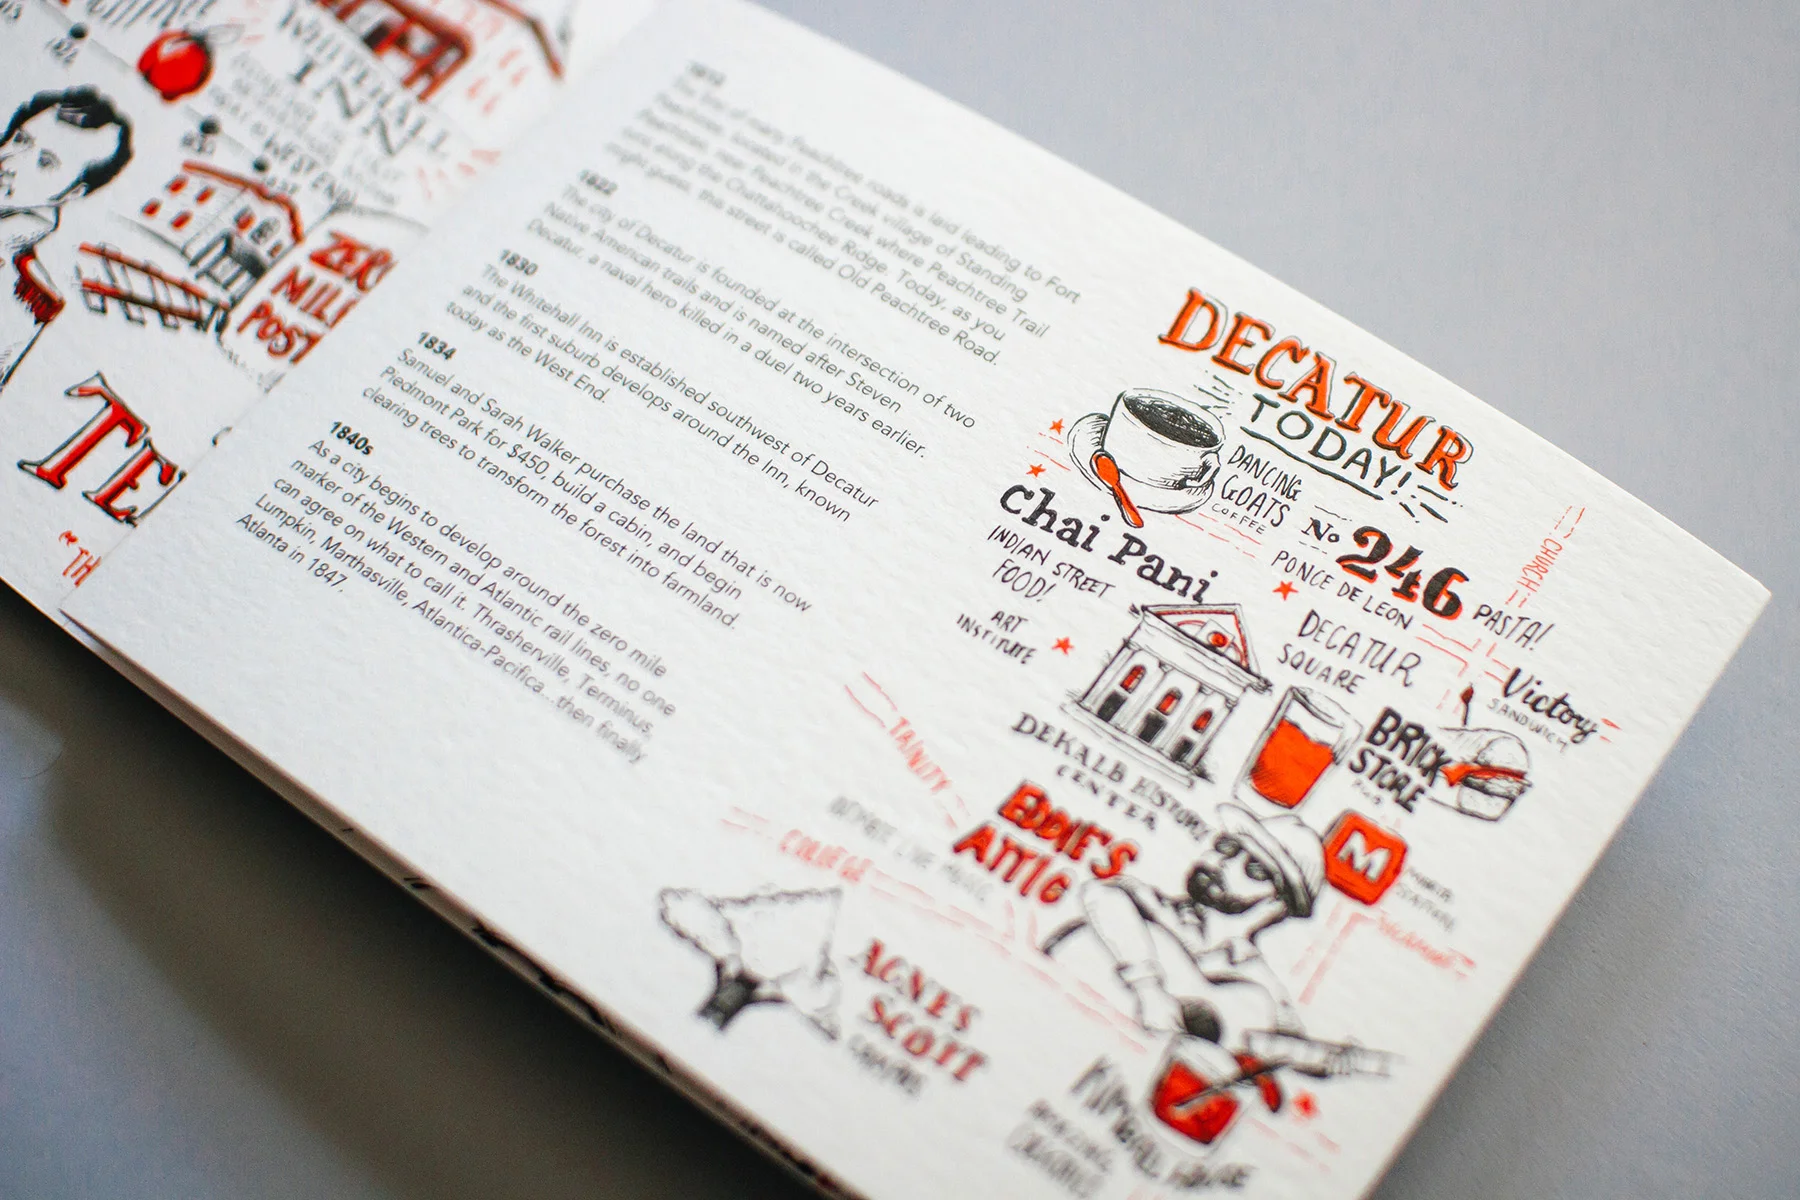 WHITEHALL
INN
WEST END
ZERO
MILE
POST
TE
"TH
The first of many Peachtree roads is laid leading to Fort
Peachtree, located in the Creek village of Standing
Peachtree, near Peachtree Creek where Peachtree Trail
runs along the Chattahoochee Ridge. Today, as you
might guess, this street is called Old Peachtree Road.
1822
The city of Decatur is founded at the intersection of two
Native American trails and is named after Steven
Decatur, a naval hero killed in a duel two years earlier.
1830
The Whitehall Inn is established southwest of Decatur
and the first suburb develops around the Inn, known
today as the West End.
1834
Samuel and Sarah Walker purchase the land that is now
Piedmont Park for $450, build a cabin, and begin
clearing trees to transform the forest into farmland.
1840s
As a city begins to develop around the zero mile
marker of the Western and Atlantic rail lines, no one
can agree on what to call it. Thrasherville, Terminus,
Lumpkin, Marthasville, Atlantica-Pacifica...then finally
Atlanta in 1847.
DECATUR
TODAY!
DANCING
GOATS
COFFEE
chai Pani
INDIAN STREET
FOOD!
No 246
PONCE DE LEON
PASTA!
CHURCH
ART
INSTITUTE
DECATUR
SQUARE
Victory
SANDWICH
BRICK
STORE
PUB
DEKALB HISTORY
CENTER
TRINITY
EDDIE'S
ATTIC
COLLEGE
M
AGNES
SCOTT
KIMBALL HOUSE